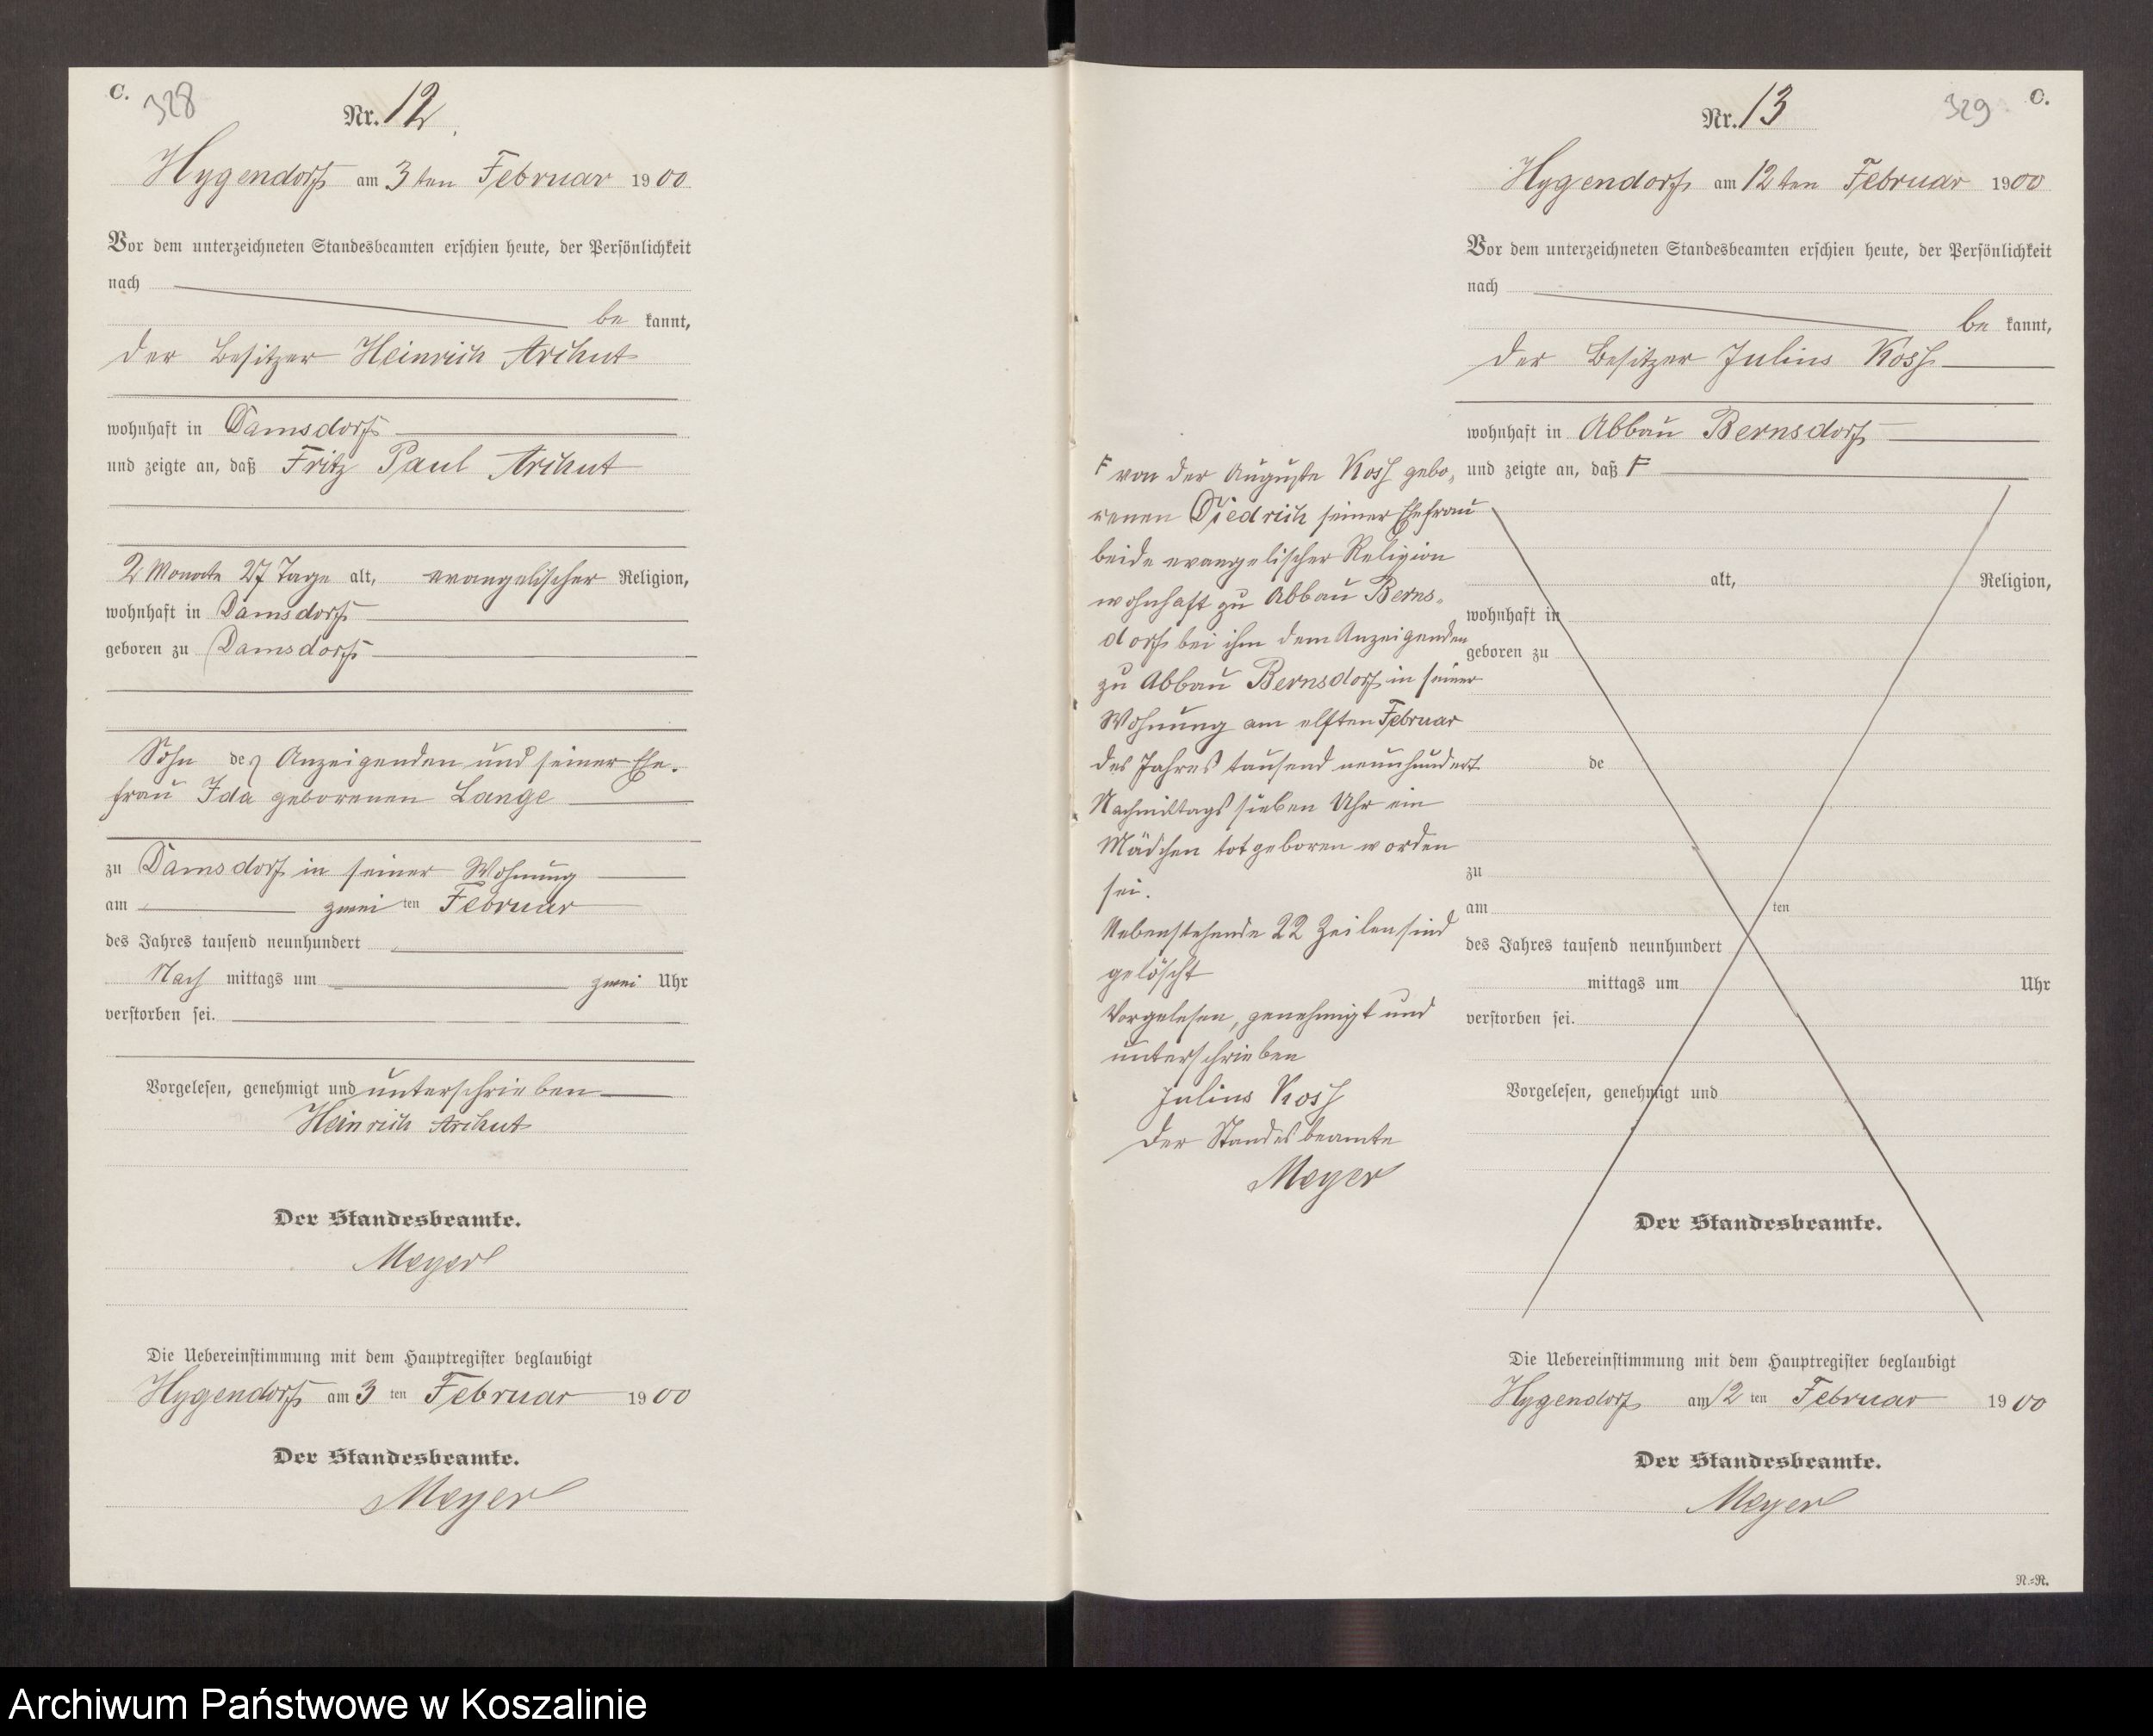 C.
328
Nr. 12
Hygendorf am 3ten Februar 1900
Vor dem unterzeichneten Standesbeamten erschien heute, der Persönlichkeit
nach
be kannt,
der Besitzer Heinrich Archut
wohnhaft in Damsdorf
und zeigte an, daß Fritz Paul Archut
2 Monate 27 Tage alt, evangelischer Religion,
wohnhaft in Damsdorf
geboren zu Damsdorf
Sohn des Anzeigenden und seiner Ehe-
frau Ida geborenen Lange
zu Damsdorf in seiner Wohnung
am zwei ten Februar
des Jahres tausend neunhundert
Nach mittags um zwei Uhr
verstorben sei.
Vorgelesen, genehmigt und unterschrieben
Heinrich Archut
Der Standesbeamte.
Meyer
Die Uebereinstimmung mit dem Hauptregister beglaubigt
Hygendorf am 3 ten Februar 1900
Der Standesbeamte.
Meyer
C.
329
Nr. 13
Hygendorf am 12ten Februar 1900
Vor dem unterzeichneten Standesbeamten erschien heute, der Persönlichkeit
nach
be kannt,
der Besitzer Julius Kosch
wohnhaft in Abbau Bernsdorf
und zeigte an, daß F
F von der Auguste Kosch gebo-
renen Diedrich seiner Ehefrau
beide evangelischer Religion
wohnhaft zu Abbau Berns-
dorf bei ihm dem Anzeigenden
zu Abbau Bernsdorf in seiner
Wohnung am elften Februar
des Jahres tausend neunhundert
Nachmittags sieben Uhr ein
Mädchen totgeboren worden
sei.
Nebenstehende 22 Zeilen sind
gelöscht
Vorgelesen, genehmigt und
unterschrieben
Julius Kosch
Der Standesbeamte
Meyer
alt, Religion,
wohnhaft in
geboren zu
de
zu
am ten
des Jahres tausend neunhundert
mittags um Uhr
verstorben sei.
Vorgelesen, genehmigt und
Der Standesbeamte.
Die Uebereinstimmung mit dem Hauptregister beglaubigt
Hygendorf am 12 ten Februar 1900
Der Standesbeamte.
Meyer
N.=R.
Archiwum Państwowe w Koszalinie